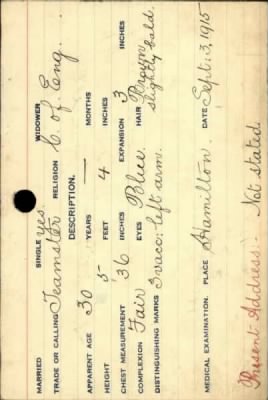 MARRIED SINGLE yes. WIDOWER
TRADE OR CALLING Teamster RELIGION C. of Eng.
DESCRIPTION.
APPARENT AGE 30 YEARS — MONTHS
HEIGHT 5 FEET 4 INCHES
CHEST MEASUREMENT 36 INCHES EXPANSION 3 INCHES
COMPLEXION Fair EYES Blue HAIR Brown
slightly bald.
DISTINGUISHING MARKS 1 vacc: left arm.
MEDICAL EXAMINATION. PLACE Hamilton. DATE Sept: 3, 1915
Present Address:- Not stated.